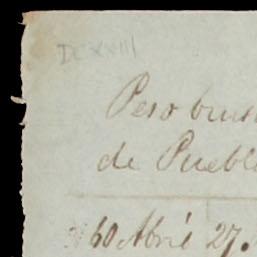 DCXXIII
Peso brut
de Puebl
60 Abril 27.